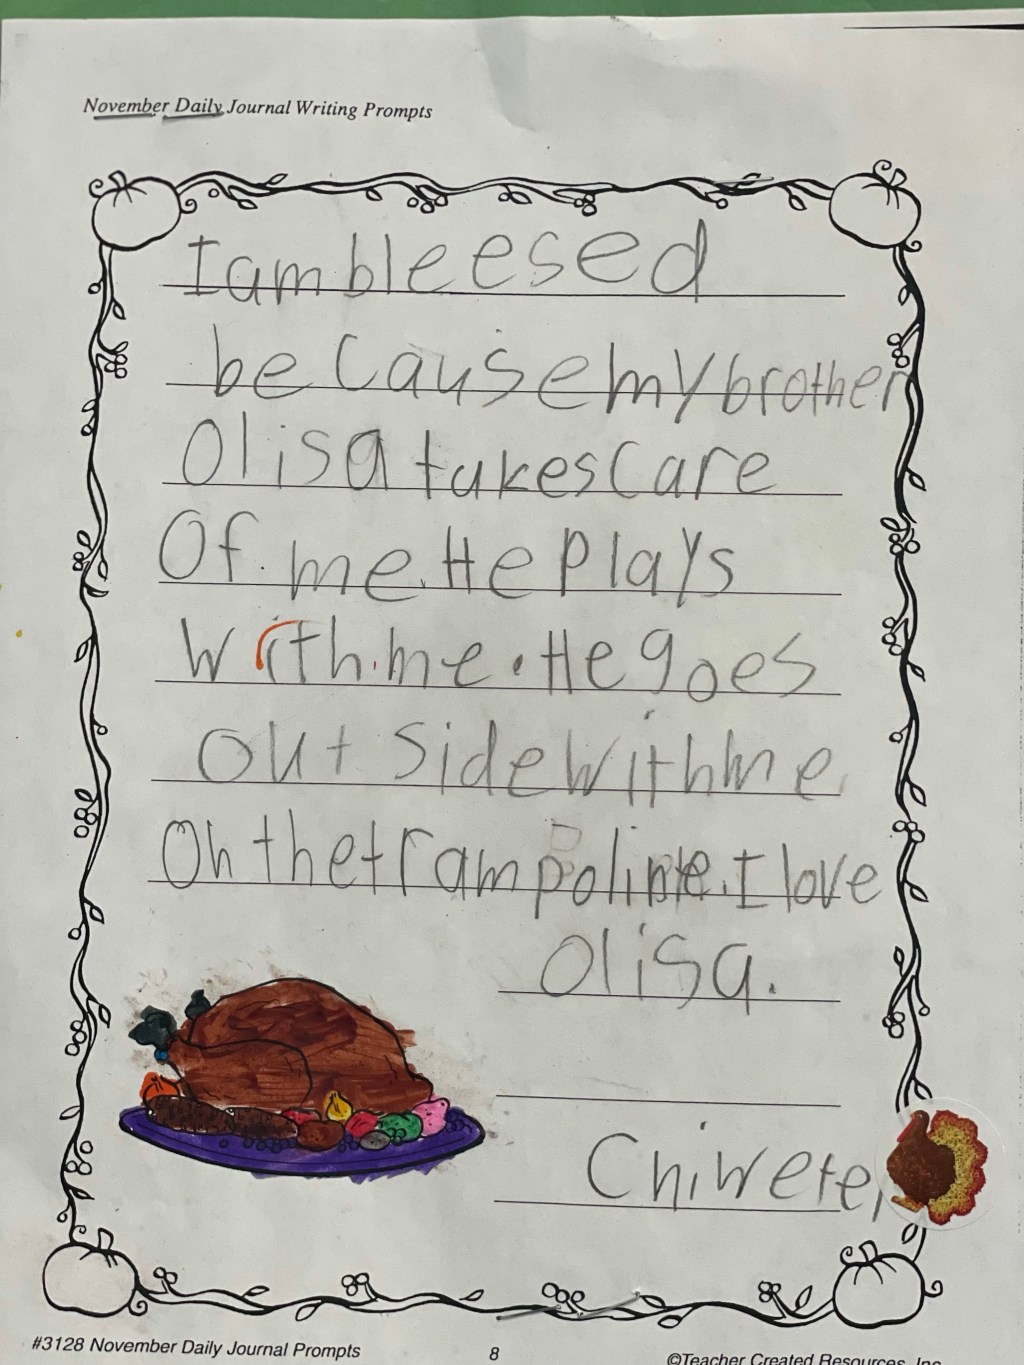 November Daily Journal Writing Prompts
I am bleesed
because my brother
Olisa takes care
Of me. He plays
with me. He goes
out side with me
On the trampoline. I love
Olisa.
Chiwete
#3128 November Daily Journal Prompts
8
©Teacher Created Resources, Inc